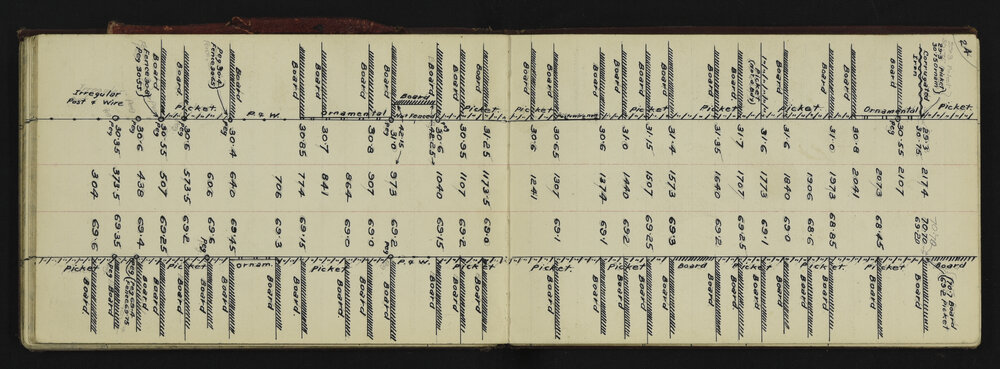 2A
Irregular
Post & Wire
Peg 3053
Fence 304
Board
Board
Picket.
Peg 304
Fence 3065
Board
P. & W.
Board
Board
Ornamental
Board
Board
Board
Not Fenced
Board
Picket
Board
Board
Board
Picket
Board
Board
Board
Board
Board
Board
Picket
Board
Board
Picket
Board
Board
Ornamental
Corrugated
Iron
Picket.
303.5
30.6
30.5
30.6
30.4
30.85
31.7
30.8
31.0
42.15
42.25
30.6
30.95
31.25
30.6
30.65
30.6
31.0
31.15
31.4
31.35
31.7
31.6
31.6
31.0
30.8
30.55
29.3
30.75
304
373.5
438
507
573.5
606
640
706
774
841
864
907
973
1040
1107
1173.5
1241
1307
1374
1440
1507
1573
1640
1707
1773
1840
1906
1973
2041
2073
2107
2174
69.6
69.35
69.4
69.25
69.2
69.6
Peg
69.45
69.3
69.15
69.0
69.0
69.2
69.15
69.2
69.0
69.1
69.1
69.2
69.25
69.3
69.2
69.25
69.1
69.0
68.6
68.85
68.45
70.10
69.20
Picket.
Board
Board
Board
Picket.
Board
Board
Ornam.
Board
Board
Picket
Board
Board
Board
P. & W.
Board
Picket
Board
Board
Picket.
Board
Picket.
Board
Board
Board
Board
Board
Picket.
Board
Board
Board
Picket.
Board
Board
Board
Picket
Board
Board
Board
Peg & Board
69.2 Picket